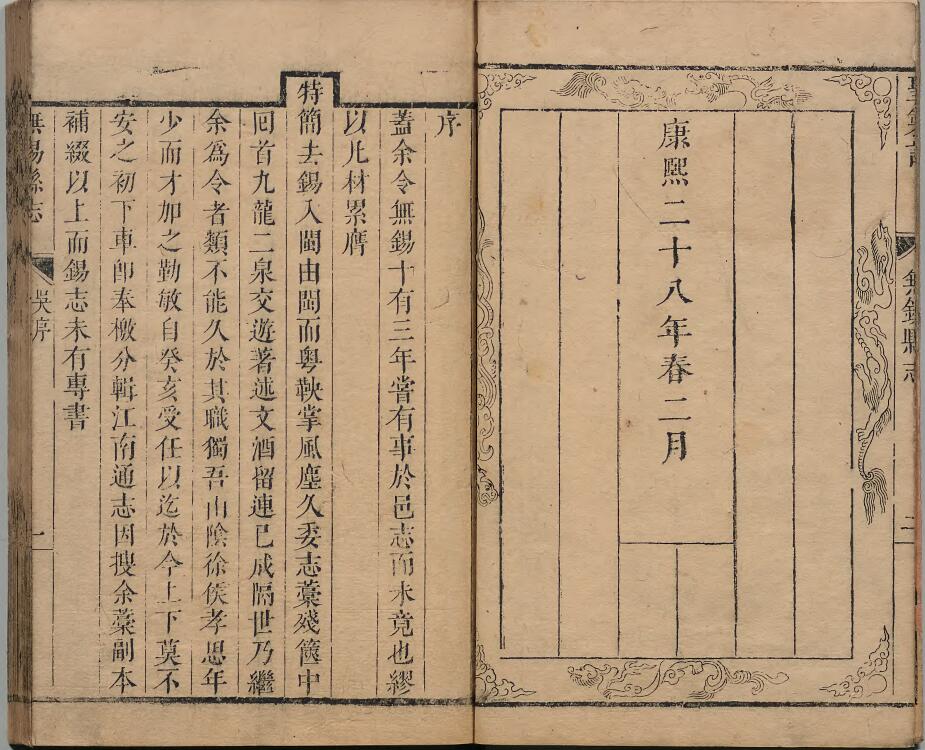 無錫縣志
二
康熙二十八年春二月
序
蓋余令無錫十有三年嘗有事於邑志而未竟也繆
以凡材累膺
特簡去錫入閩由閩而粵鞅掌風塵久委志藁殘篋中
回首九龍二泉交遊著述文酒留連已成隔世乃繼
余爲令者類不能久於其職獨吾山陰徐侯孝思年
少而才加之勤敏自癸亥受任以迄於今上下莫不
安之初下車卽奉檄分輯江南通志因搜余藁副本
補綴以上而錫志未有專書
無錫縣志
吳序
一